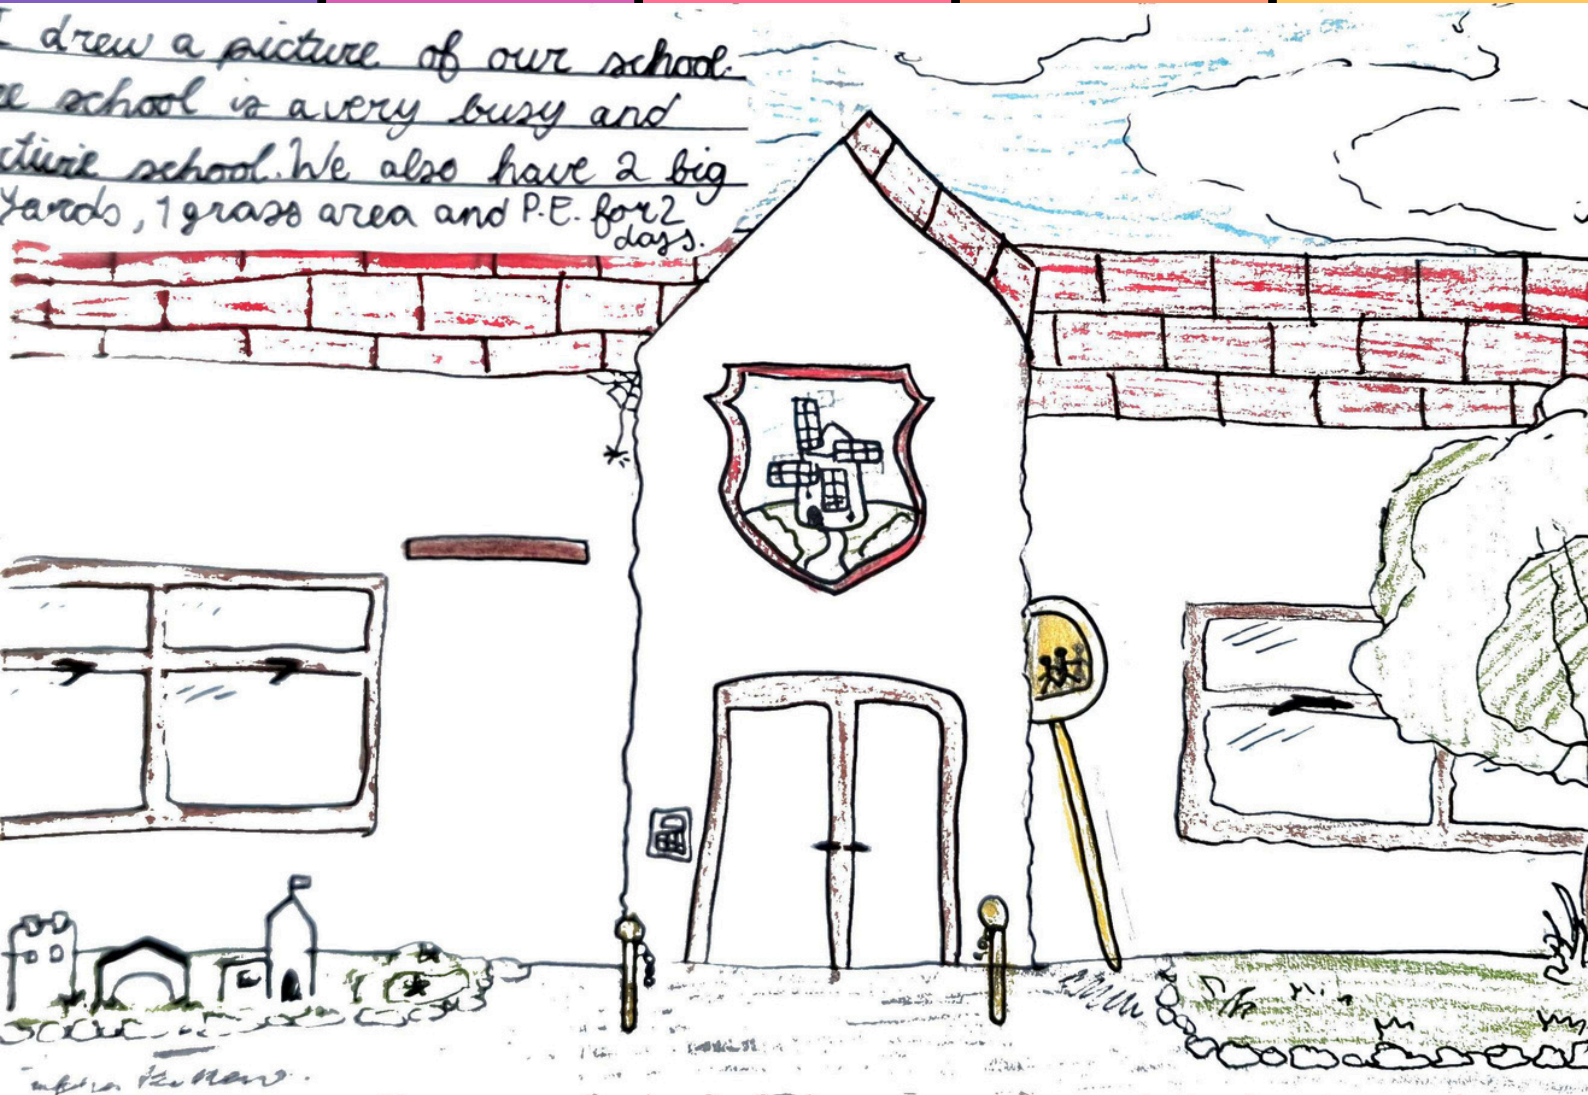 I drew a picture of our school.
school is a very busy and
school. We also have 2 big
yards, 1 grass area and P.E. for 2
days.